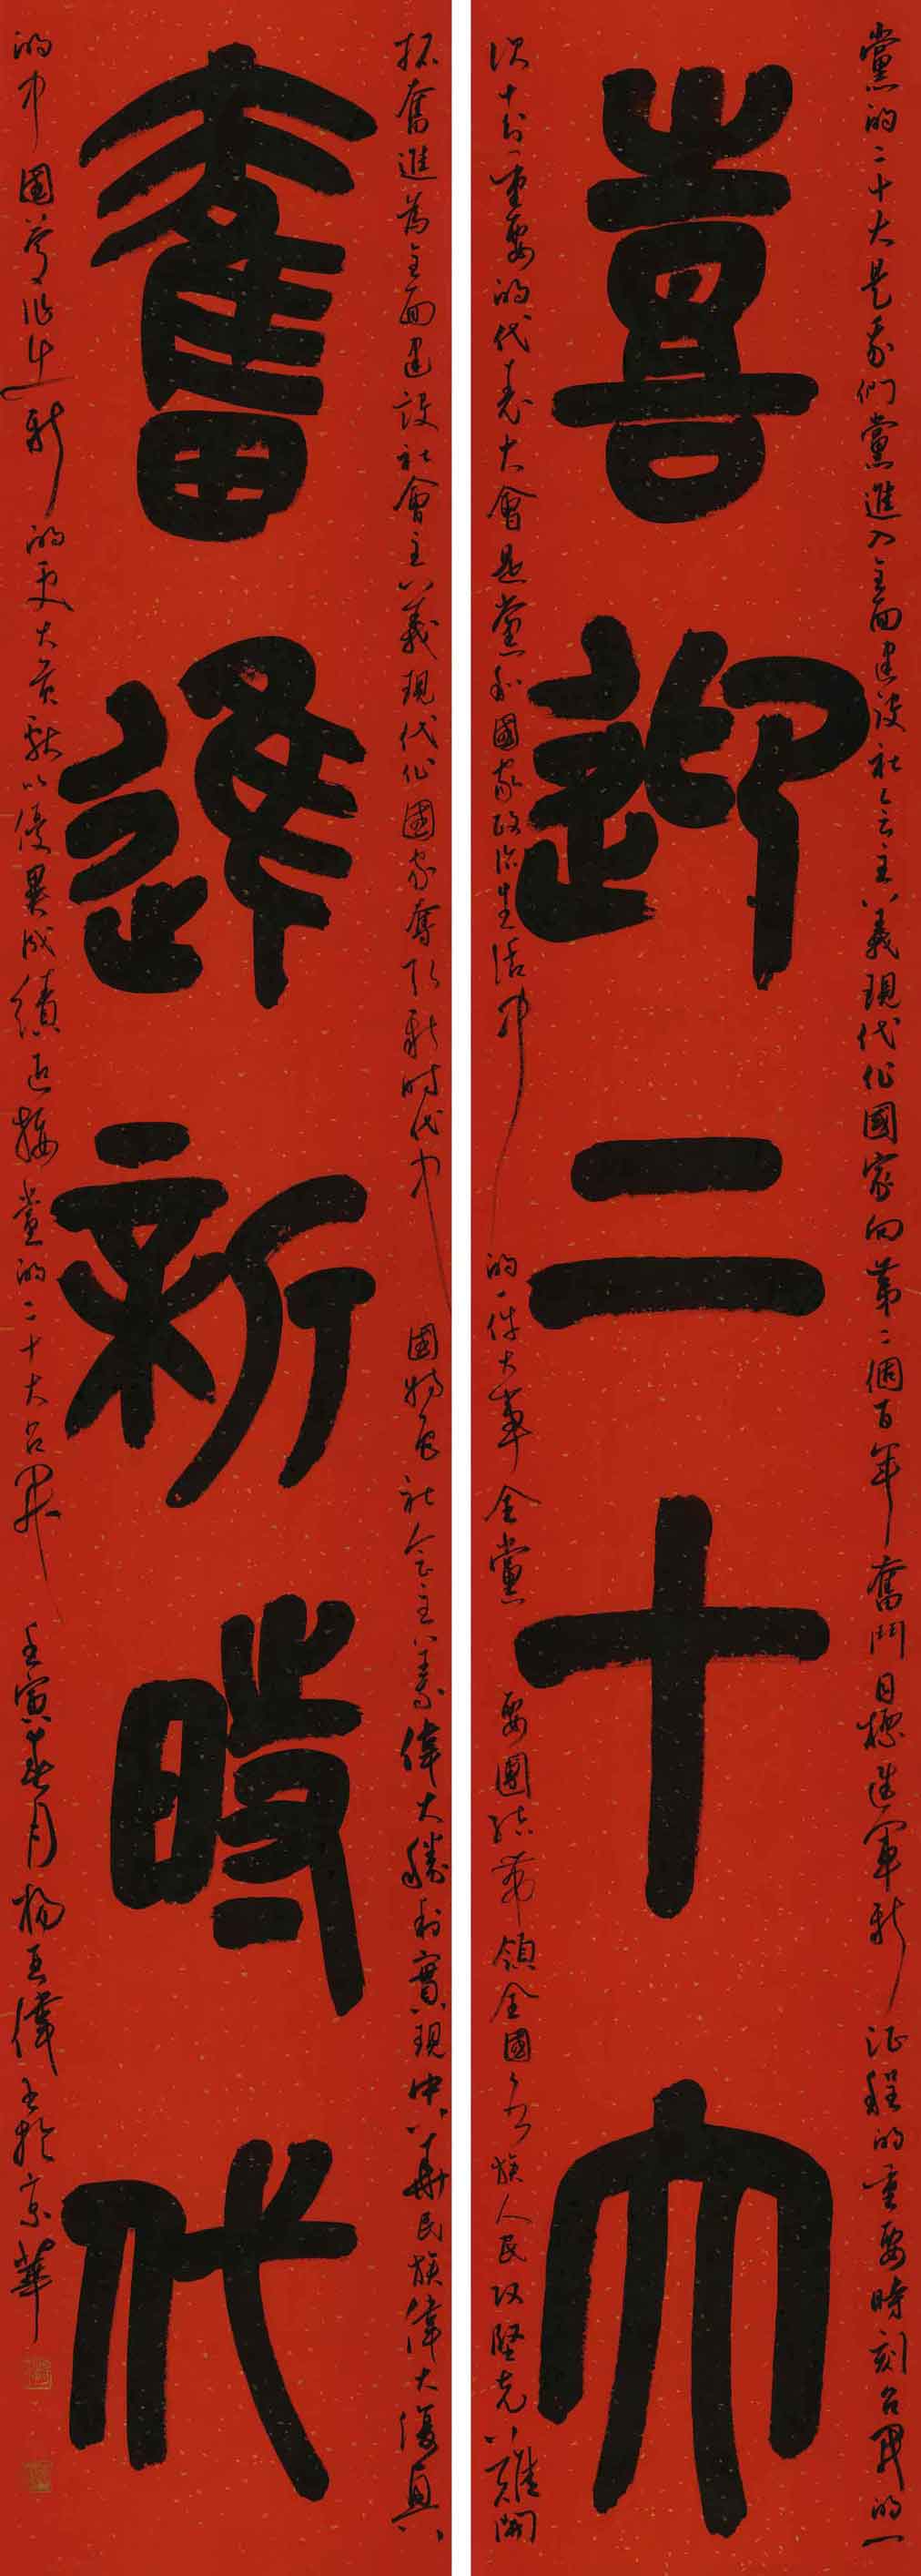 喜迎二十大
黨的二十大是我們黨進入全面建設社会主義現代化國家向第二個百年奮鬥目標進軍新征程的重要時刻召開的一
次十分重要的代表大會是黨和國家政治生活中的一件大事全黨要團結帶領全國各族人民攻堅克難開
奮進新時代
拓奮進為全面建設社會主義現代化國家奪取新时代中國特色社会主義偉大勝利實現中華民族偉大復興
的中國夢作出新的更大貢獻以優異成績迎接黨的二十大召開 壬寅春月楊五偉書於京華